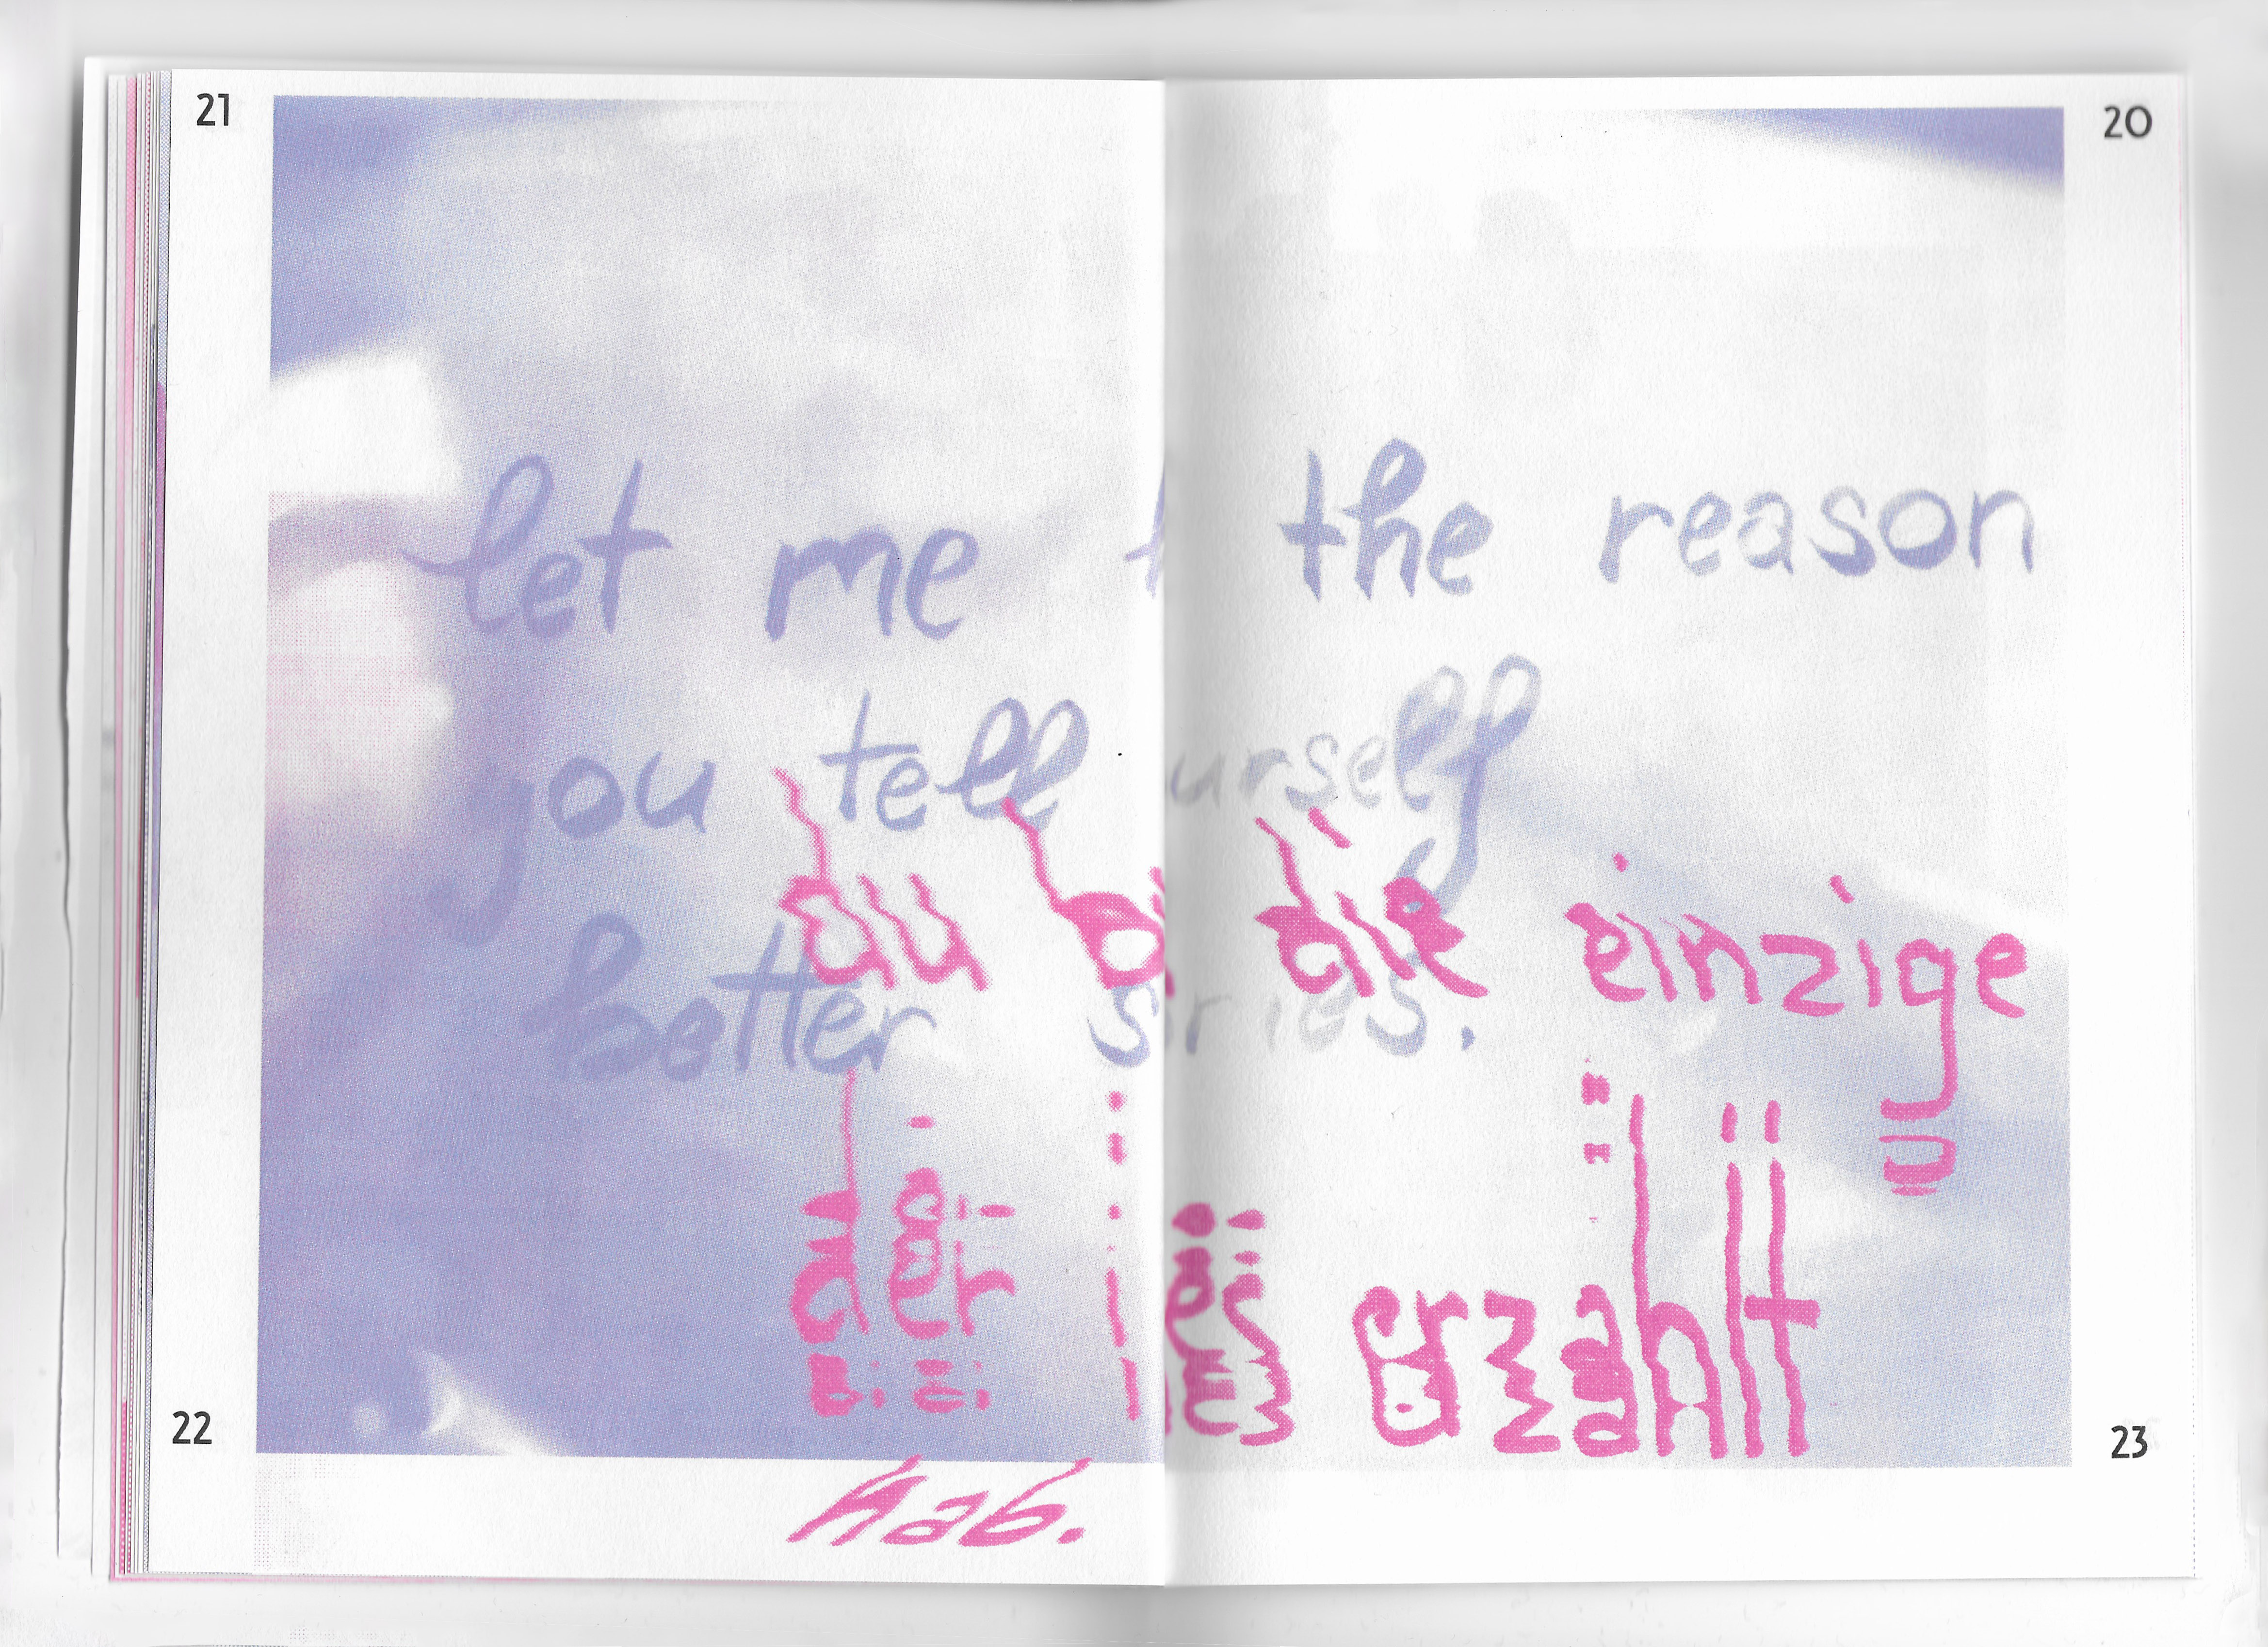 21
20
let me the reason
you tell urself
better s ries.
du die einzige
der erzählt
hab.
22
23